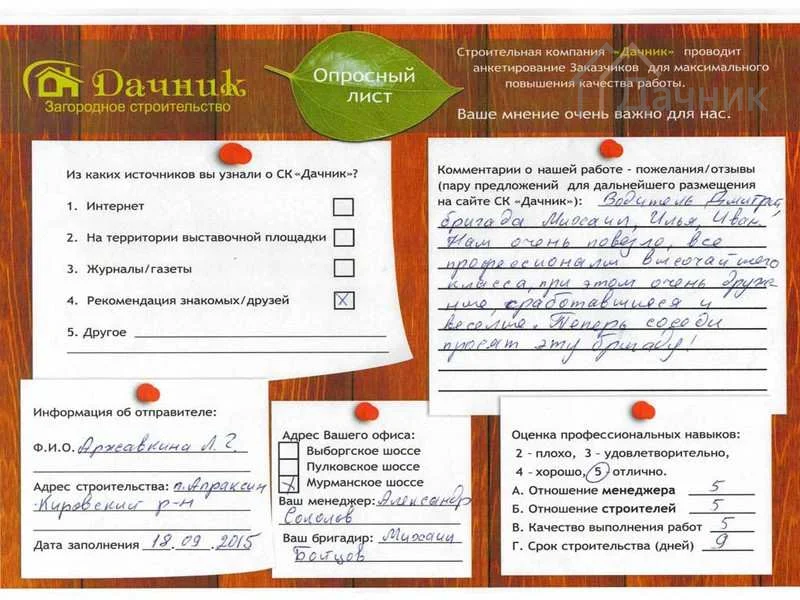 Дачник
Загородное строительство
Опросный
лист
Строительная компания «Дачник» проводит
анкетирование Заказчиков для максимального
повышения качества работы.
Ваше мнение очень важно для нас.
Дачник
Из каких источников вы узнали о СК «Дачник»?
1. Интернет
2. На территории выставочной площадки
3. Журналы/газеты
4. Рекомендация знакомых/друзей X
5. Другое
Комментарии о нашей работе - пожелания/отзывы
(пару предложений для дальнейшего размещения
на сайте СК «Дачник»): Водитель Дмитрий,
бригада Михаил, Илья, Иван.
Нам очень повезло, все
профессионалы высочайшего
класса, при этом очень друж-
ные, сработавшиеся и
веселые. Теперь соседи
просят эту бригаду!
Информация об отправителе:
Ф.И.О. Аржавкина Л.
Адрес строительства: п. Апраксин
Кировский р-н
Дата заполнения 18.09.2015
Адрес Вашего офиса:
Выборгское шоссе
Пулковское шоссе
X Мурманское шоссе
Ваш менеджер: Александр
Соколов
Ваш бригадир: Михаил
Бойцов
Оценка профессиональных навыков:
2 - плохо, 3 - удовлетворительно,
4 - хорошо, 5 - отлично.
А. Отношение менеджера 5
Б. Отношение строителей 5
В. Качество выполнения работ 5
Г. Срок строительства (дней) 9